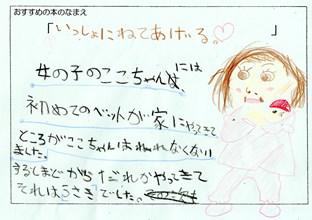 おすすめの本のなまえ
「いっしょにねてあげる。♡」
女の子のここちゃんは、には
初めてのベットが家にやってきて
ところがここちゃんはねれなくなり
ました。
するとまどからだれかやってきて
それはうさぎでした。